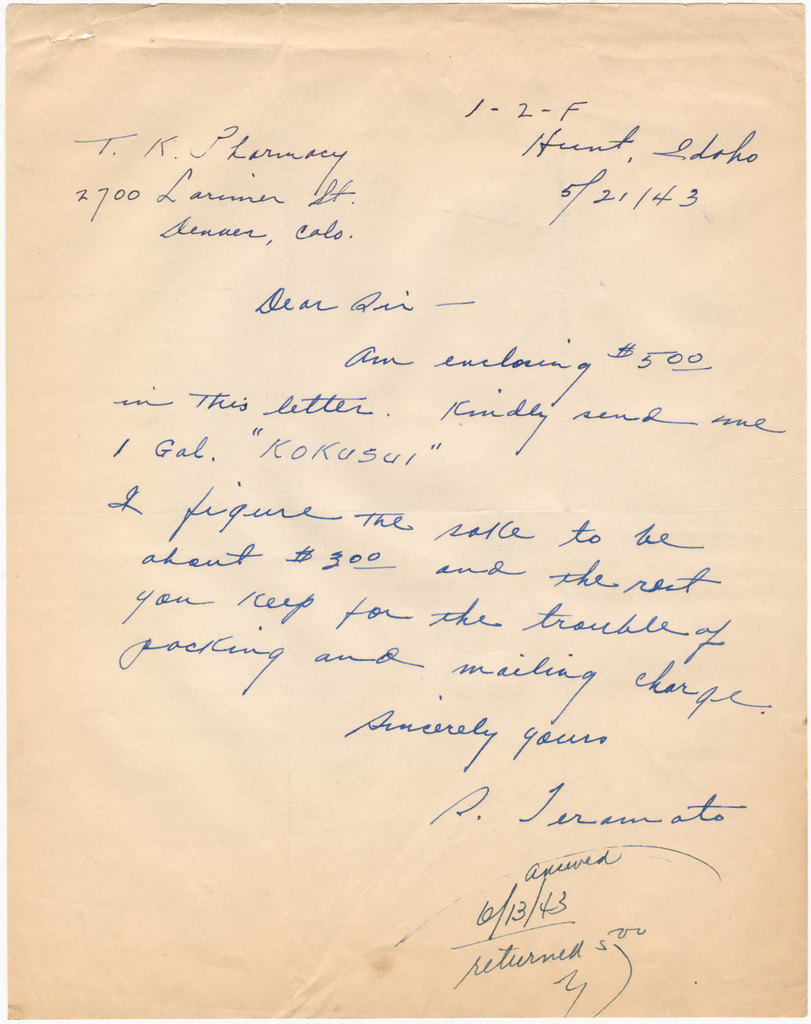 1-2-F
Hunt, Idaho
5/21/43
T. K. Pharmacy
2700 Larimer St.
Denver, Colo.
Dear Sir —
Am enclosing $5 00
in this letter. Kindly send me
1 Gal. "KOKUSUI"
I figure the sake to be
about $3 00 and the rest
you keep for the trouble of
packing and mailing charge.
Sincerely yours
S. Teramoto
answered
6/13/43
returned 5 00